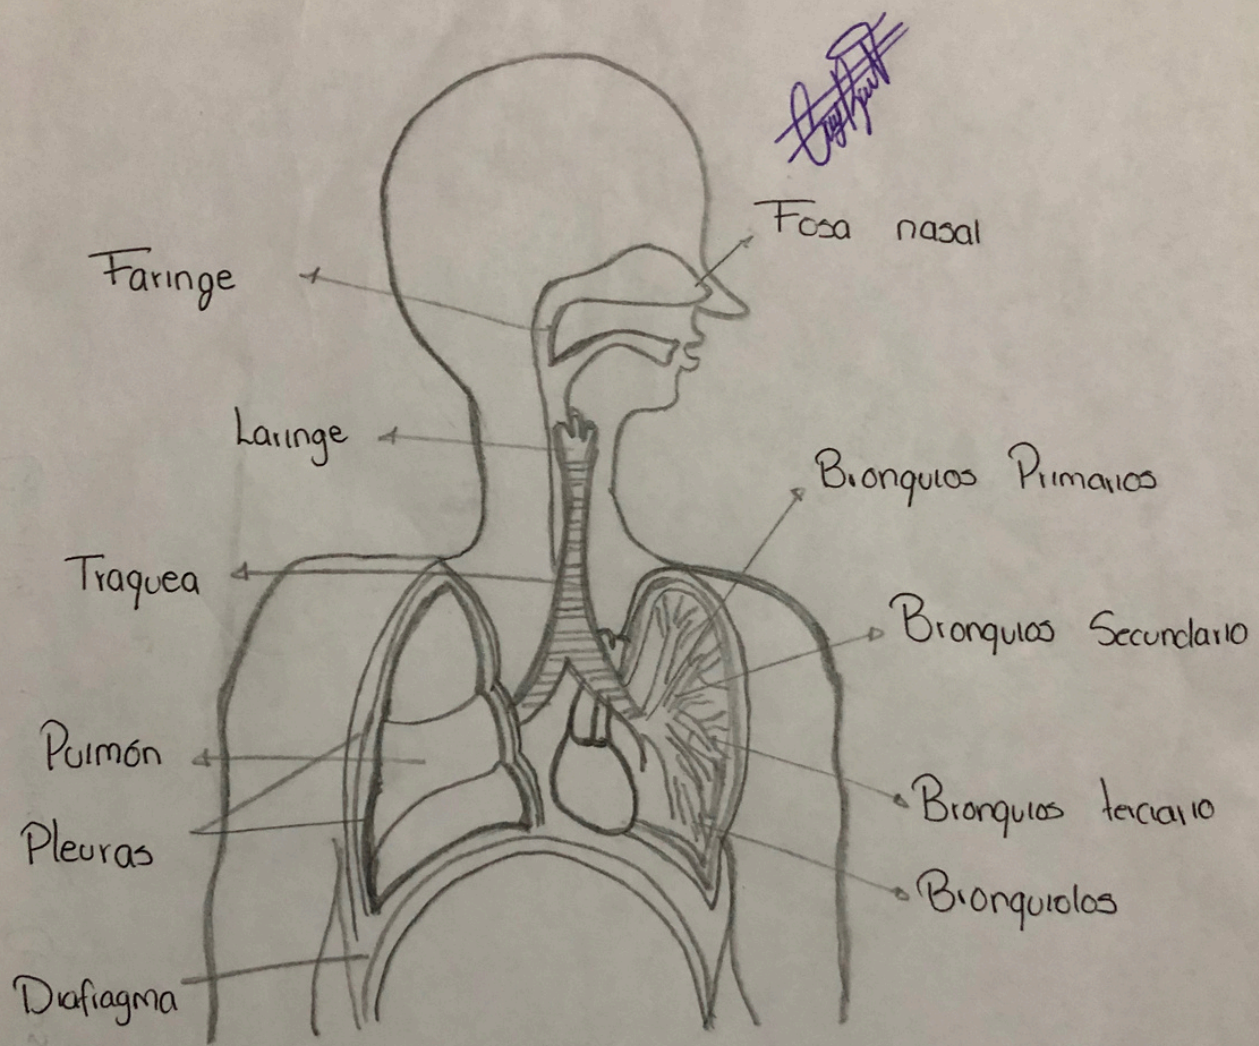 Fosa nasal
Faringe
Laringe
Bronquios Primarios
Traquea
Bronquios Secundario
Pulmón
Pleuras
Bronquios terciario
Bronquiolos
Diafragma